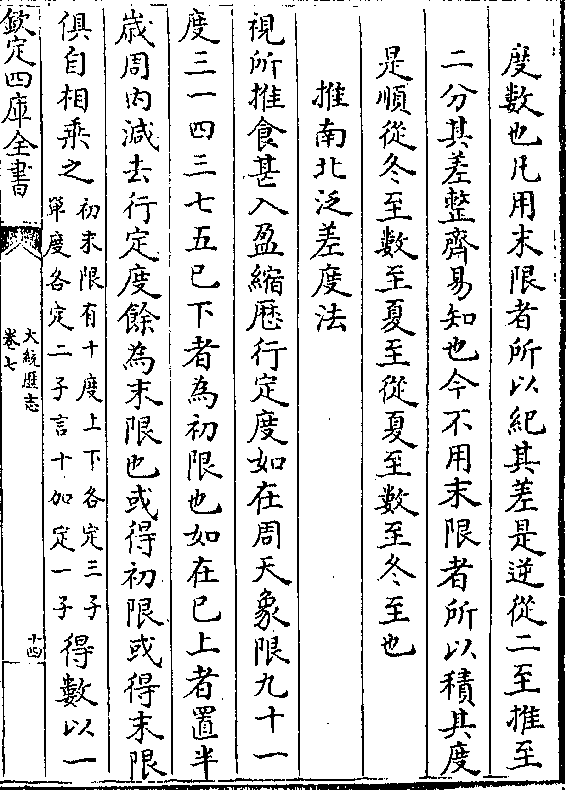 度數也凡用末限者所以紀其差是逆從二至推至
二分其差整齊易知也今不用末限者所以積其度
是順從冬至數至夏至從夏至數至冬至也
推南北泛差度法
視所推食甚入盈縮厯行定度如在周天象限九十一
度三一四三七五已下者為初限也如在已上者置半
歳周内減去行定度餘為末限也或得初限或得末限
俱自相乘之
初末限有十度上下各定三子
單度各定二子言十加定一子
得數以一
欽定四庫全書
大統厯志
卷七
十四